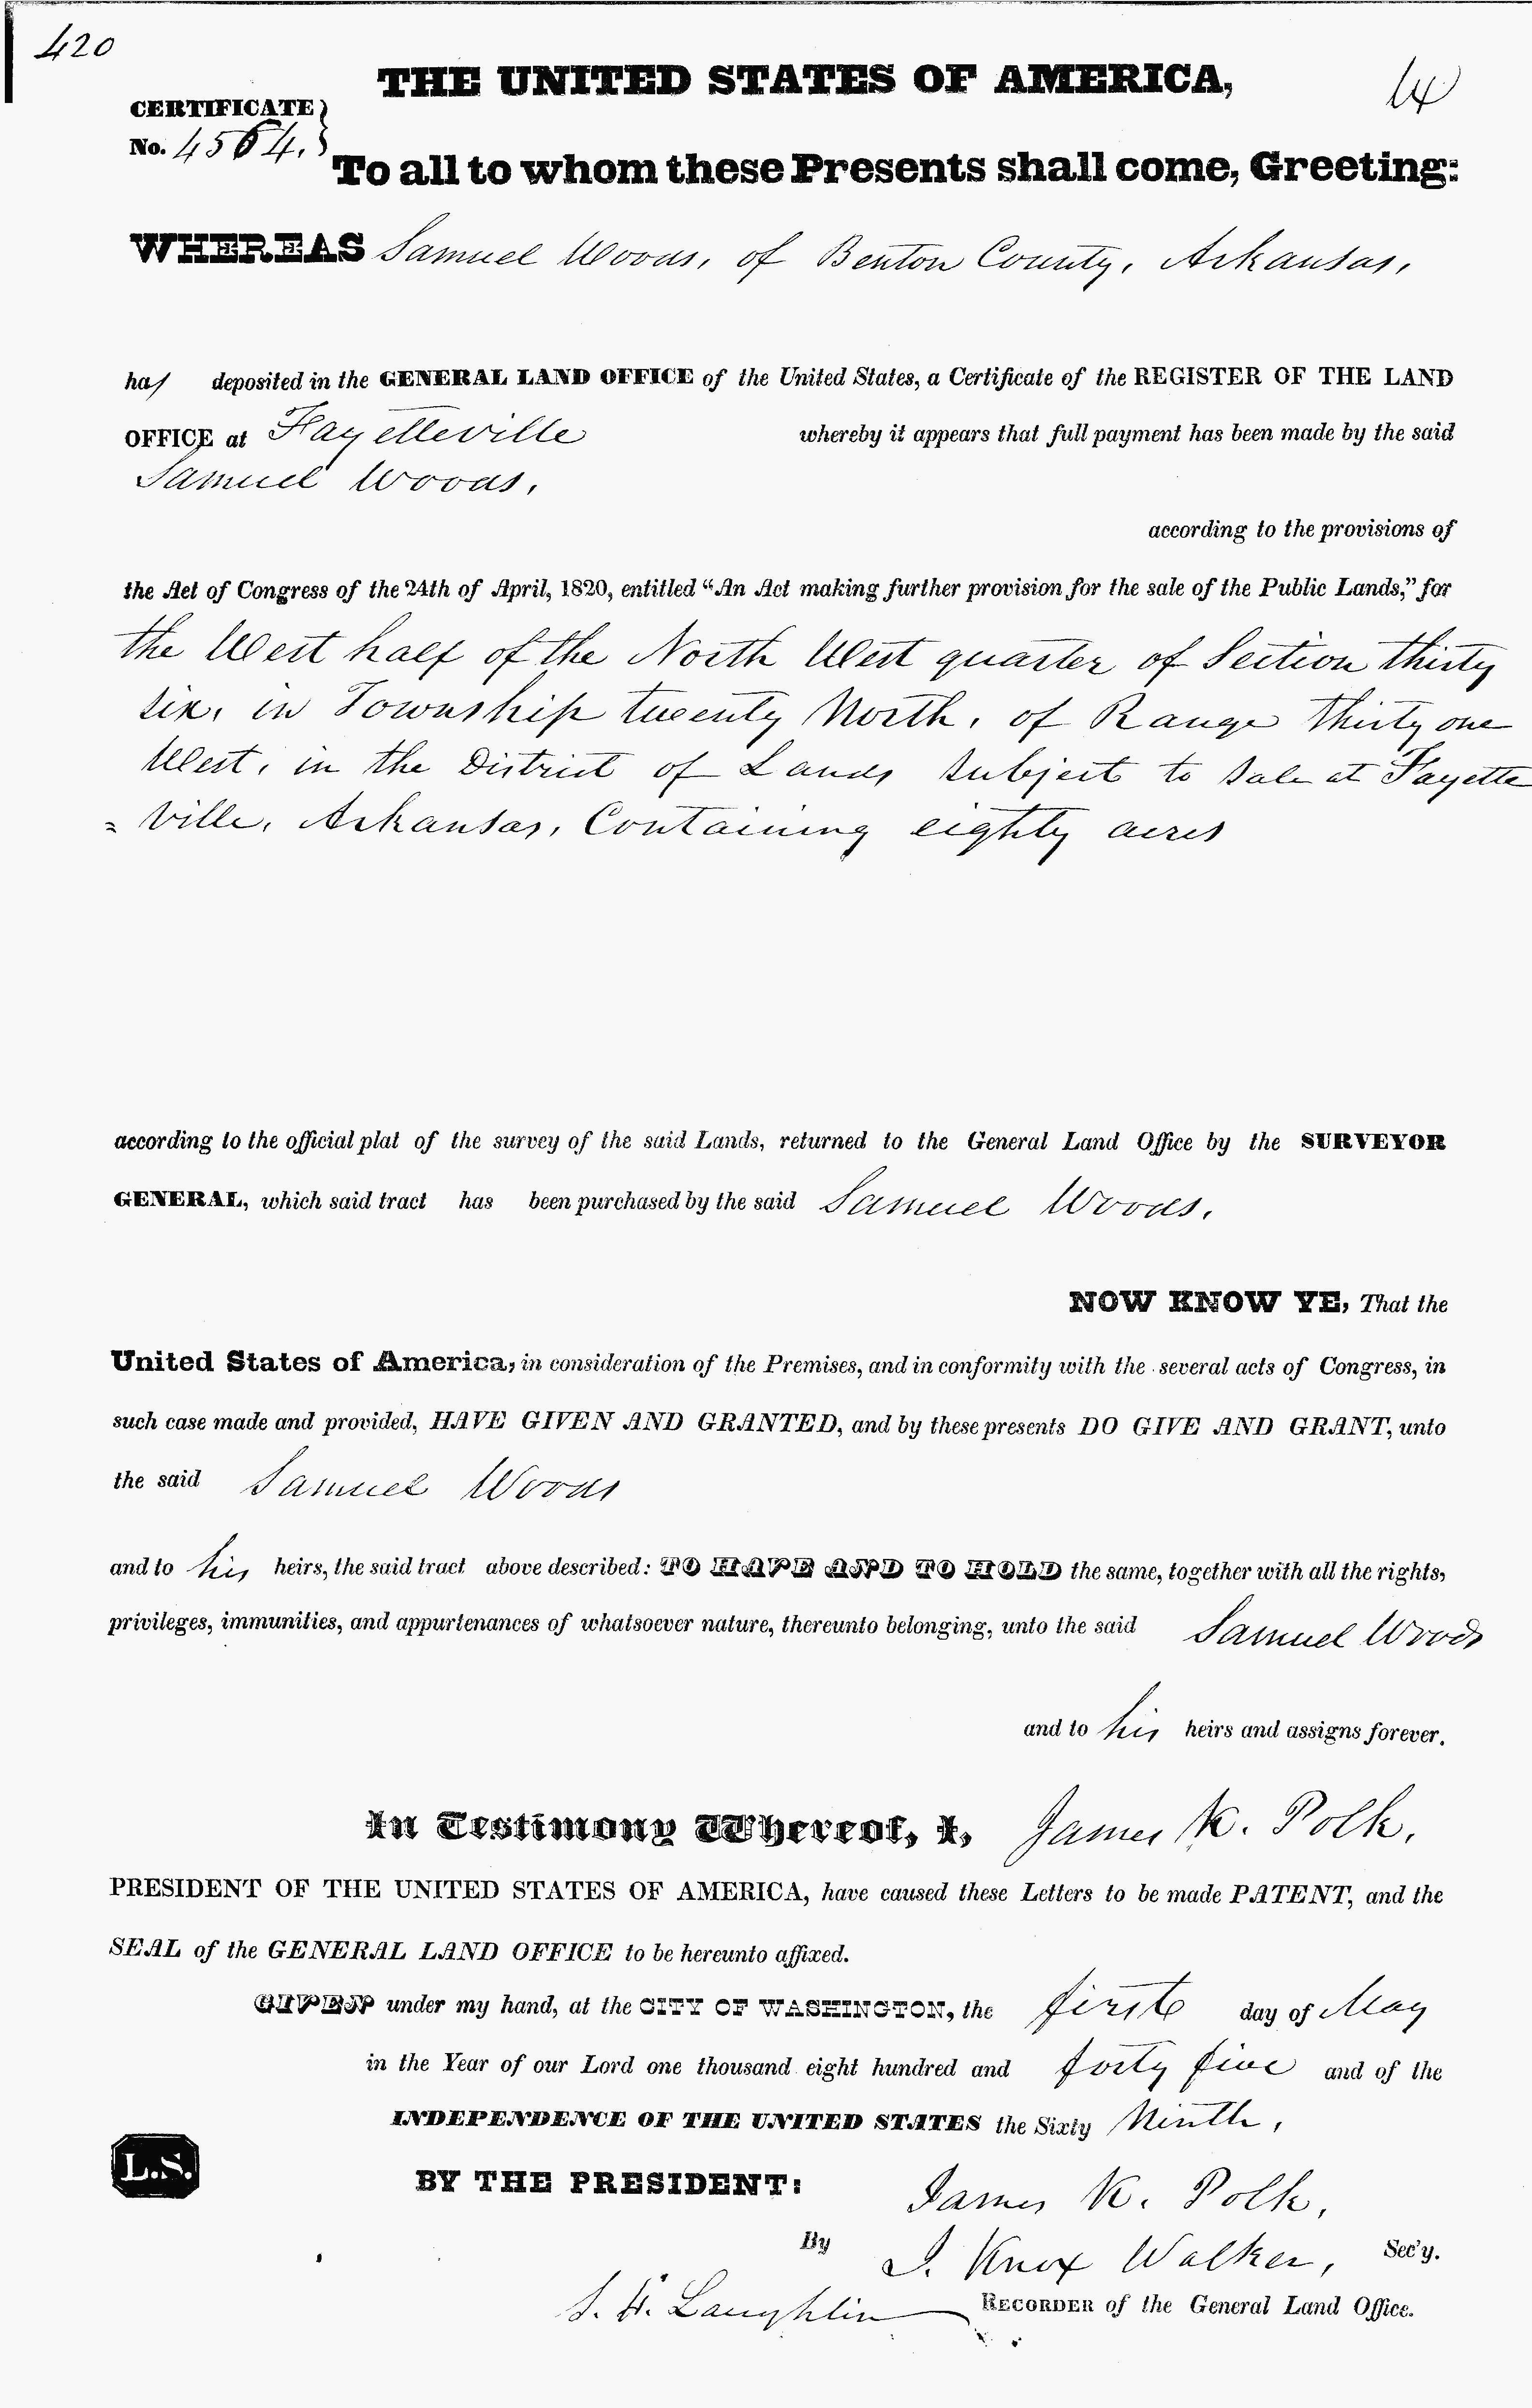 420
THE UNITED STATES OF AMERICA,
CERTIFICATE
No. 4564.
To all to whom these Presents shall come, Greeting:
WHEREAS Samuel Woods, of Benton County, Arkansas,
has deposited in the GENERAL LAND OFFICE of the United States, a Certificate of the REGISTER OF THE LAND
OFFICE at Fayetteville whereby it appears that full payment has been made by the said
Samuel Woods,
according to the provisions of
the Act of Congress of the 24th of April, 1820, entitled “An Act making further provision for the sale of the Public Lands,” for
the West half of the North West quarter of Section thirty
six, in Township twenty North, of Range thirty one
West, in the District of Lands subject to sale at Fayette
= ville, Arkansas, Containing eighty acres
according to the official plat of the survey of the said Lands, returned to the General Land Office by the SURVEYOR
GENERAL, which said tract has been purchased by the said Samuel Woods,
NOW KNOW YE, That the
United States of America, in consideration of the Premises, and in conformity with the several acts of Congress, in
such case made and provided, HAVE GIVEN AND GRANTED, and by these presents DO GIVE AND GRANT, unto
the said Samuel Woods
and to his heirs, the said tract above described: TO HAVE AND TO HOLD the same, together with all the rights,
privileges, immunities, and appurtenances of whatsoever nature, thereunto belonging, unto the said Samuel Woods
and to his heirs and assigns forever.
In Testimony Whereof, I, James K. Polk,
PRESIDENT OF THE UNITED STATES OF AMERICA, have caused these Letters to be made PATENT, and the
SEAL of the GENERAL LAND OFFICE to be hereunto affixed.
GIVEN under my hand, at the CITY OF WASHINGTON, the first day of May
in the Year of our Lord one thousand eight hundred and forty five and of the
INDEPENDENCE OF THE UNITED STATES the Sixty Ninth,
L.S.
BY THE PRESIDENT: James K. Polk,
By J. Knox Walker, Sec'y.
S. H. Laughlin RECORDER of the General Land Office.